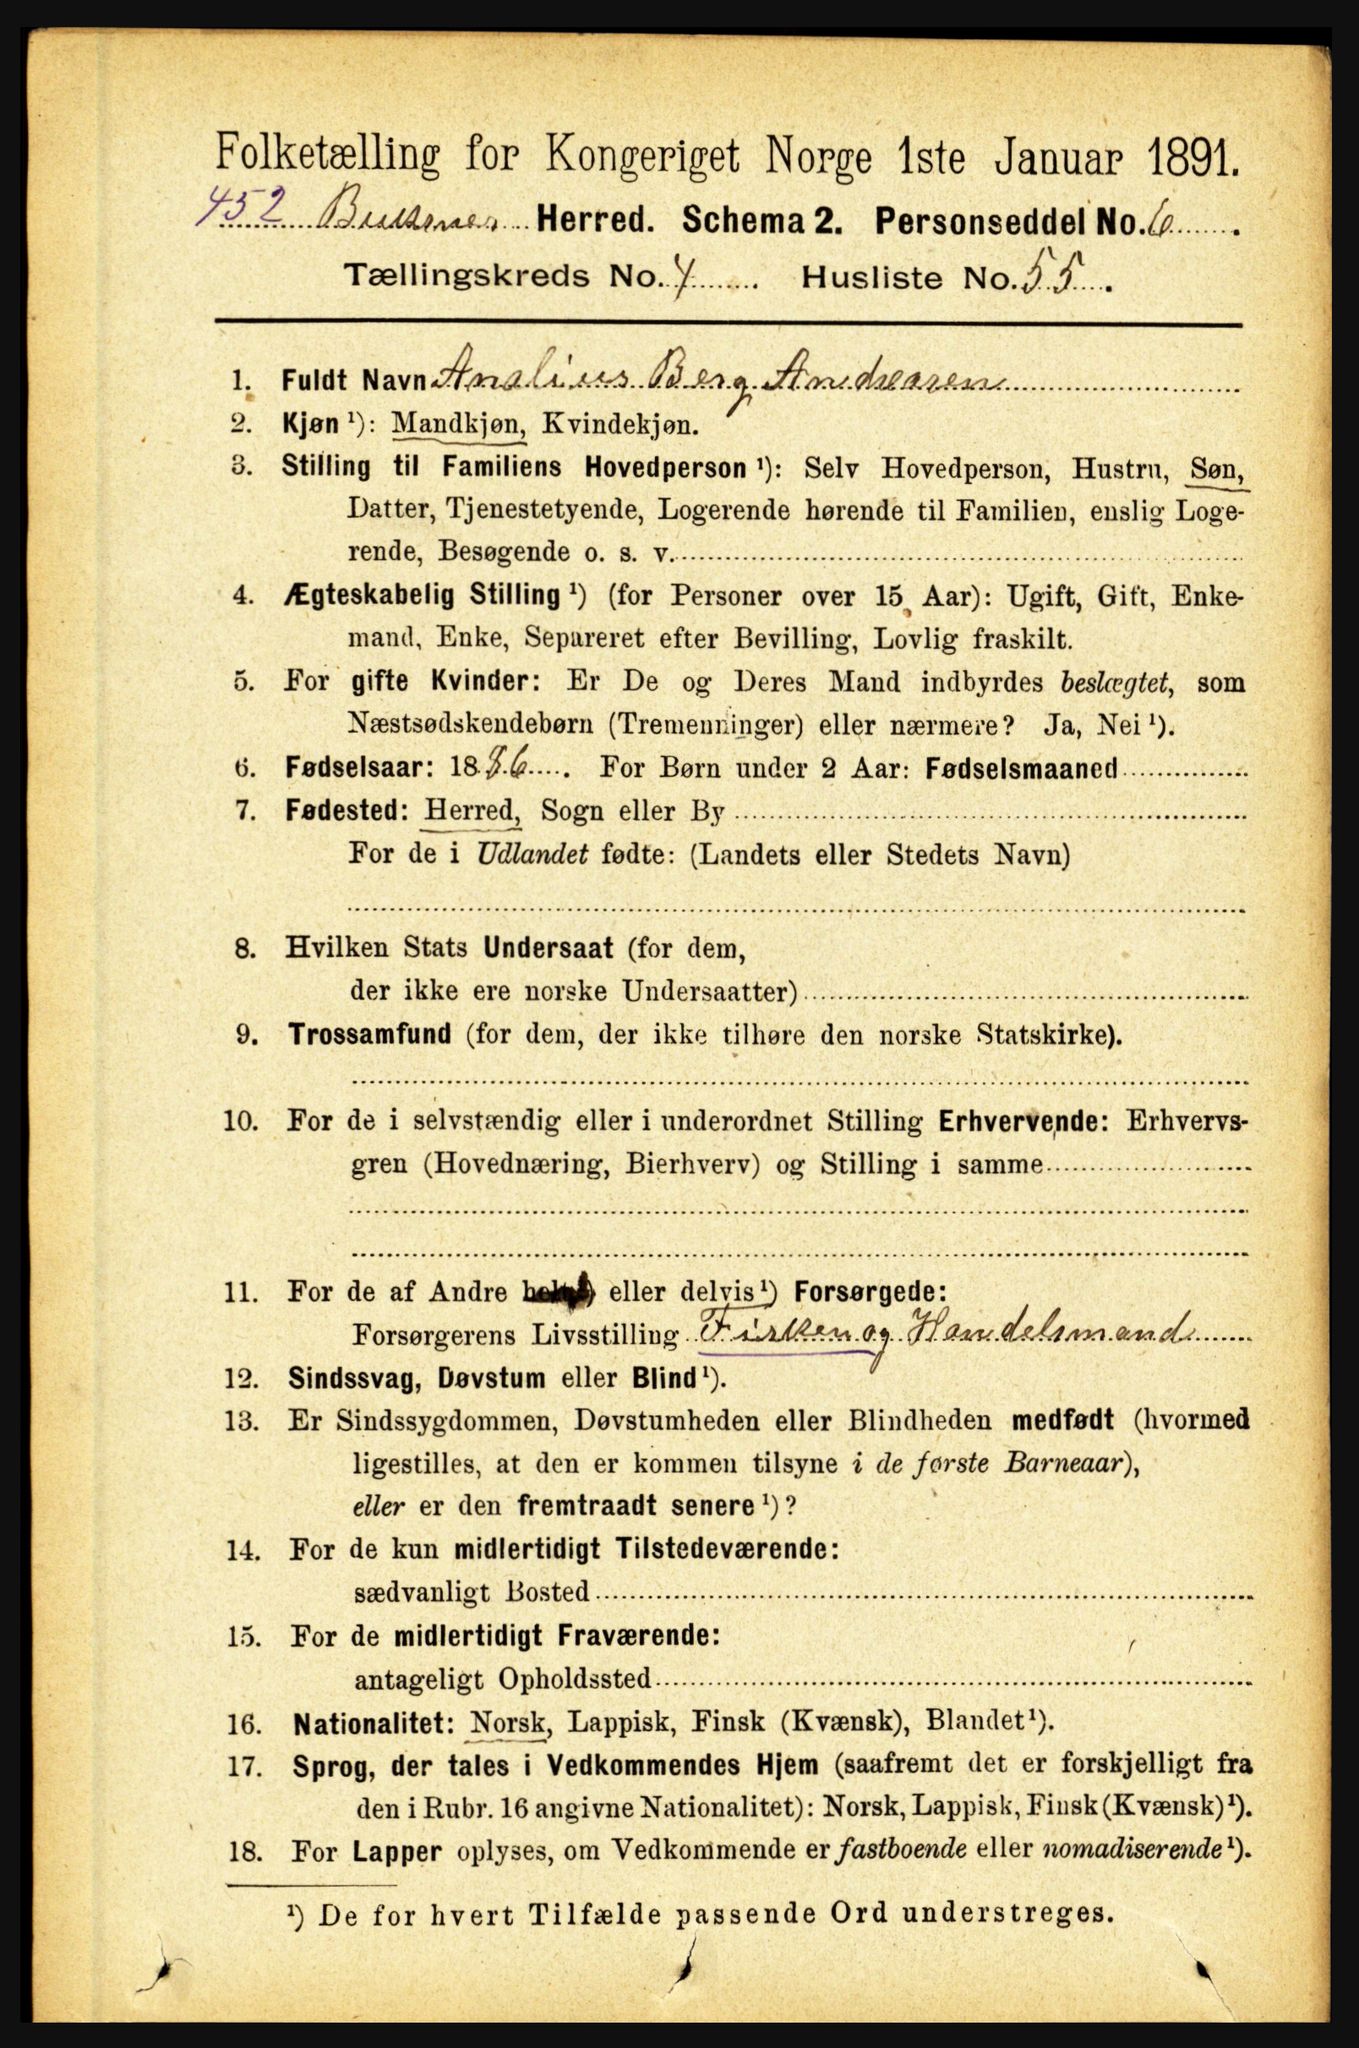 Folketælling for Kongeriget Norge 1ste Januar 1891.
452 Buksnes Herred. Schema 2. Personseddel No. 6
Tællingskreds No. 4 Husliste No. 55.
1. Fuldt Navn Analius Berg Andreasen
2. Kjøn ¹): Mandkjøn, Kvindekjøn.
3. Stilling til Familiens Hovedperson ¹): Selv Hovedperson, Hustru, Søn,
Datter, Tjenestetyende, Logerende hørende til Familien, enslig Loge-
rende, Besøgende o. s. v.
4. Ægteskabelig Stilling ¹) (for Personer over 15 Aar): Ugift, Gift, Enke-
mand, Enke, Separeret efter Bevilling, Lovlig fraskilt.
5. For gifte Kvinder: Er De og Deres Mand indbyrdes beslægtet, som
Næstsødskendebørn (Tremenninger) eller nærmere? Ja, Nei ¹).
6. Fødselsaar: 1886. For Børn under 2 Aar: Fødselsmaaned
7. Fødested: Herred, Sogn eller By
For de i Udlandet fødte: (Landets eller Stedets Navn)
8. Hvilken Stats Undersaat (for dem,
der ikke ere norske Undersaatter)
9. Trossamfund (for dem, der ikke tilhøre den norske Statskirke).
10. For de i selvstændig eller i underordnet Stilling Erhvervende: Erhvervs-
gren (Hovednæring, Bierhverv) og Stilling i samme
11. For de af Andre eller delvis ¹) Forsørgede:
Forsørgerens Livsstilling Fisker og Handelsmand
12. Sindssvag, Døvstum eller Blind ¹).
13. Er Sindssygdommen, Døvstumheden eller Blindheden medfødt (hvormed
ligestilles, at den er kommen tilsyne i de første Barneaar),
eller er den fremtraadt senere ¹)?
14. For de kun midlertidigt Tilstedeværende:
sædvanligt Bosted
15. For de midlertidigt Fraværende:
antageligt Opholdssted
16. Nationalitet: Norsk, Lappisk, Finsk (Kvænsk), Blandet ¹).
17. Sprog, der tales i Vedkommendes Hjem (saafremt det er forskjelligt fra
den i Rubr. 16 angivne Nationalitet): Norsk, Lappisk, Finsk (Kvænsk) ¹).
18. For Lapper oplyses, om Vedkommende er fastboende eller nomadiserende ¹).
¹) De for hvert Tilfælde passende Ord understreges.